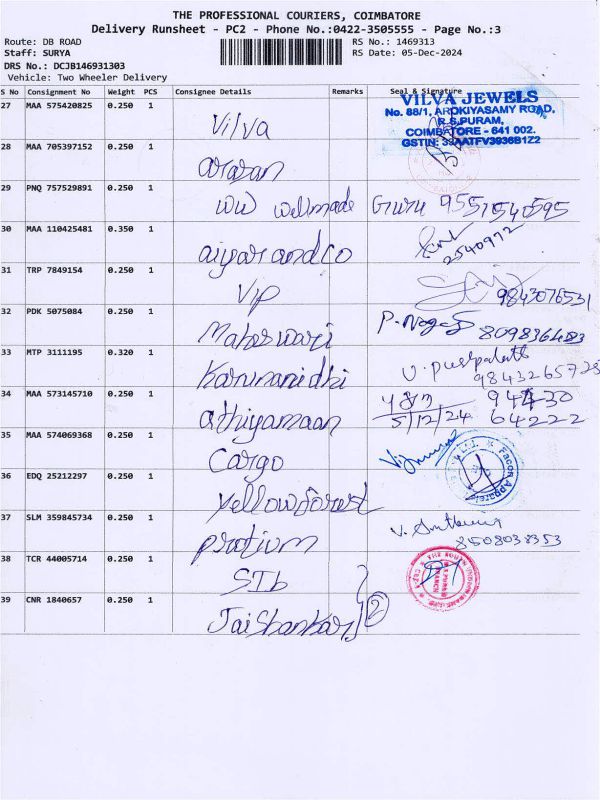 THE PROFESSIONAL COURIERS, COIMBATORE
Delivery Runsheet - PC2 - Phone No.:0422-3505555 - Page No.:3
Route: DB ROAD RS No.: 1469313
Staff: SURYA RS Date: 05-Dec-2024
DRS No.: DCJB146931303
Vehicle: Two Wheeler Delivery
S No Consignment No Weight PCS Consignee Details Remarks Seal & Signature
27 MAA 575420825 0.250 1 Vilva
VILVA JEWELS
No. 88/1, AROKIYASAMY ROAD,
R.S.PURAM,
COIMBATORE - 641 002.
GSTIN: 33AATFV3936B1Z2
28 MAA 705397152 0.250 1
29 PNQ 757529891 0.250 1 WW wellmade Guru 9551540595
30 MAA 110425481 0.350 1 aiyar and co 2540972
31 TRP 7849154 0.250 1 Vip 9843076531
32 PDK 5075084 0.250 1 Maheswari
33 MTP 3111195 0.320 1 Karunanidhi
34 MAA 573145710 0.250 1 athiyamaan 5/12/24 64222
35 MAA 574069368 0.250 1 Cargo
36 EDQ 25212297 0.250 1 yellow forest
37 SLM 359845734 0.250 1 protium 8508038353
38 TCR 44005714 0.250 1 STb
39 CNR 1840657 0.250 1 Jai Shankar 2